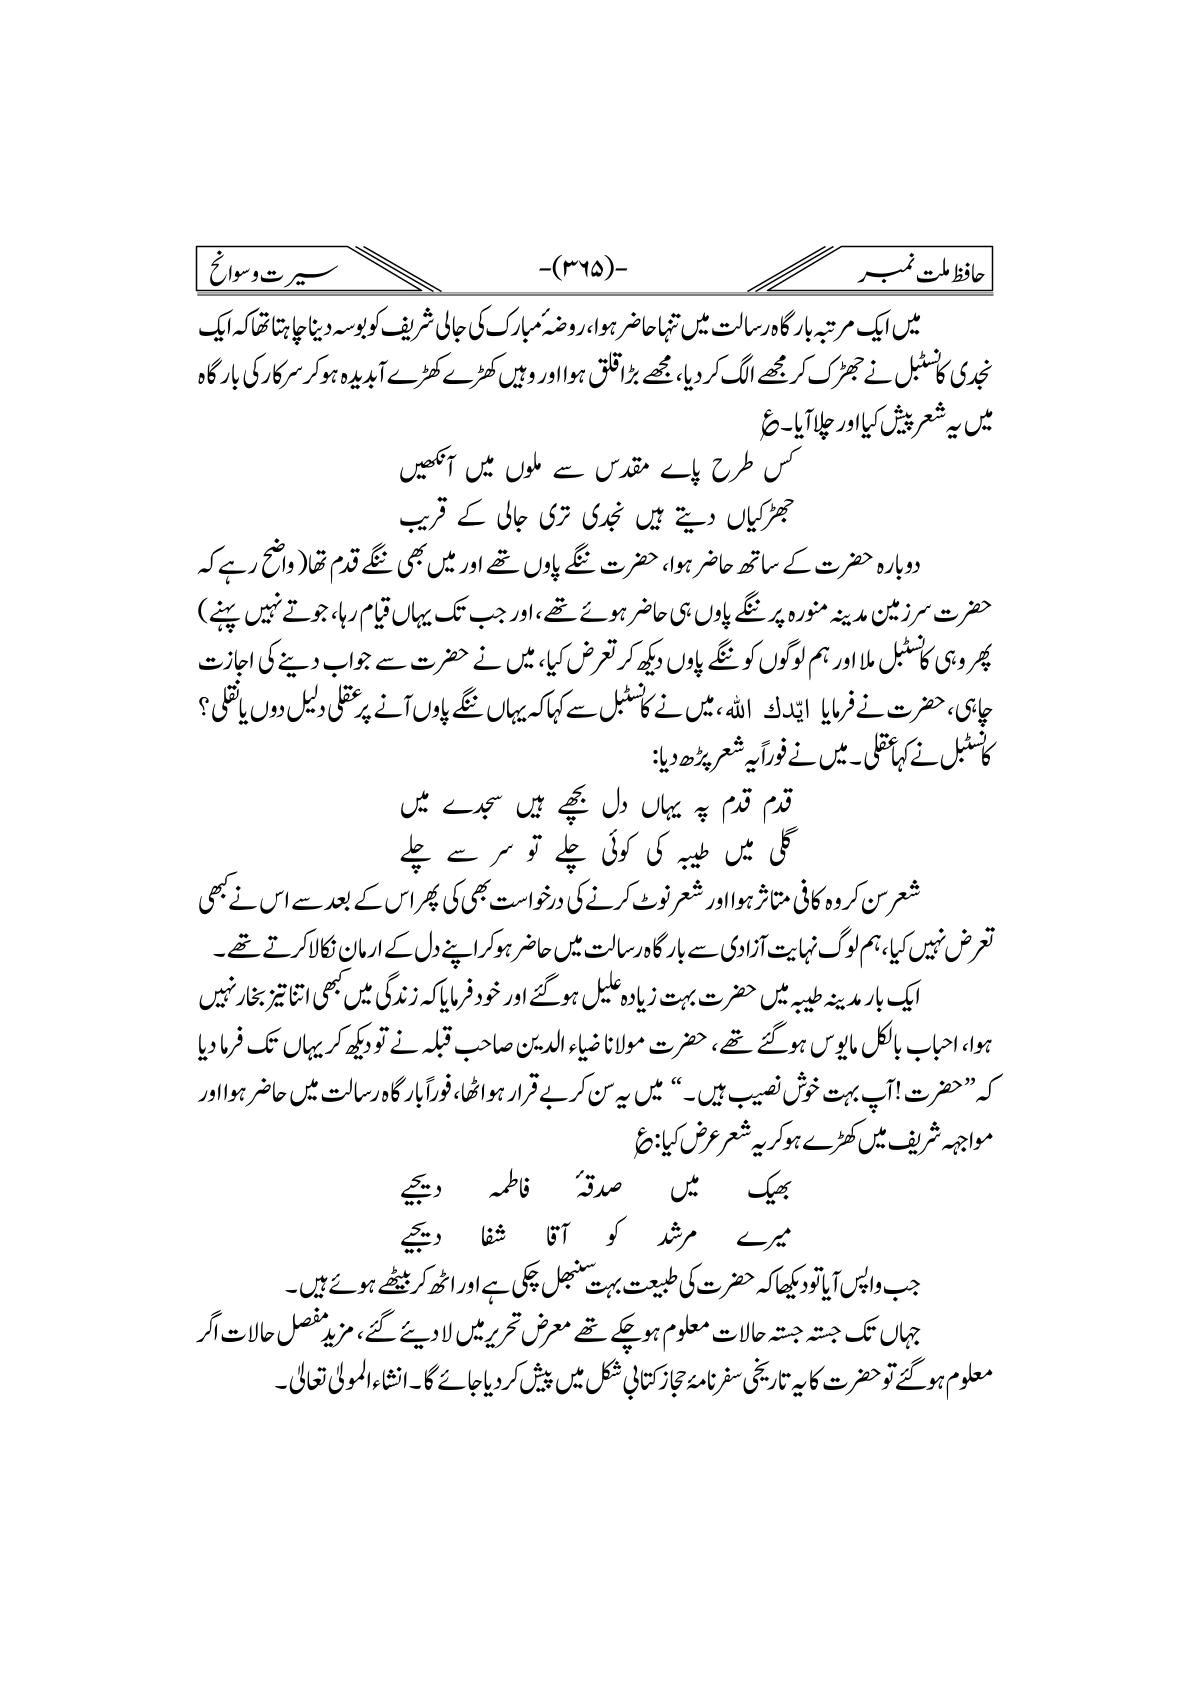 حافظ ملت نمبر
-(۳۶۵)-
سیرت و سوانح
میں ایک مرتبہ بارگاہ رسالت میں تنہا حاضر ہوا، روضۂ مبارک کی جالی شریف کو بوسہ دینا چاہتا تھا کہ ایک
نجدی کانسٹبل نے جھڑک کر مجھے الگ کر دیا، مجھے بڑا قلق ہوا اور وہیں کھڑے کھڑے آبدیدہ ہو کر سرکار کی بارگاہ
میں یہ شعر پیش کیا اور چلا آیا۔ ع
کس طرح پاے مقدس سے ملوں میں آنکھیں
جھڑکیاں دیتے ہیں نجدی تری جالی کے قریب
دوبارہ حضرت کے ساتھ حاضر ہوا، حضرت ننگے پاوں تھے اور میں بھی ننگے قدم تھا( واضح رہے کہ
حضرت سرزمین مدینہ منورہ پر ننگے پاوں ہی حاضر ہوئے تھے، اور جب تک یہاں قیام رہا، جوتے نہیں پہنے)
پھر وہی کانسٹبل ملا اور ہم لوگوں کو ننگے پاوں دیکھ کر تعرض کیا، میں نے حضرت سے جواب دینے کی اجازت
چاہی، حضرت نے فرمایا ایّدك الله، میں نے کانسٹبل سے کہا کہ یہاں ننگے پاوں آنے پر عقلی دلیل دوں یا نقلی؟
کانسٹبل نے کہا عقلی۔ میں نے فوراً یہ شعر پڑھ دیا:
قدم قدم پہ یہاں دل بچھے ہیں سجدے میں
گلی میں طیبہ کی کوئی چلے تو سر سے چلے
شعر سن کر وہ کافی متاثر ہوا اور شعر نوٹ کرنے کی درخواست بھی کی پھر اس کے بعد سے اس نے کبھی
تعرض نہیں کیا، ہم لوگ نہایت آزادی سے بارگاہ رسالت میں حاضر ہو کر اپنے دل کے ارمان نکالا کرتے تھے۔
ایک بار مدینہ طیبہ میں حضرت بہت زیادہ علیل ہو گئے اور خود فرمایا کہ زندگی میں کبھی اتنا تیز بخار نہیں
ہوا، احباب بالکل مایوس ہو گئے تھے، حضرت مولانا ضیاء الدین صاحب قبلہ نے تو دیکھ کر یہاں تک فرما دیا
کہ ”حضرت! آپ بہت خوش نصیب ہیں۔“ میں یہ سن کر بے قرار ہو اٹھا، فوراً بارگاہ رسالت میں حاضر ہوا اور
مواجہہ شریف میں کھڑے ہو کر یہ شعر عرض کیا: ع
بھیک میں صدقۂ فاطمہ دیجیے
میرے مرشد کو آقا شفا دیجیے
جب واپس آیا تو دیکھا کہ حضرت کی طبیعت بہت سنبھل چکی ہے اور اٹھ کر بیٹھے ہوئے ہیں۔
جہاں تک جستہ جستہ حالات معلوم ہو چکے تھے معرض تحریر میں لا دیئے گئے، مزید مفصل حالات اگر
معلوم ہو گئے تو حضرت کا یہ تاریخی سفرنامۂ حجاز کتابی شکل میں پیش کر دیا جائے گا۔ انشاء المولیٰ تعالیٰ۔